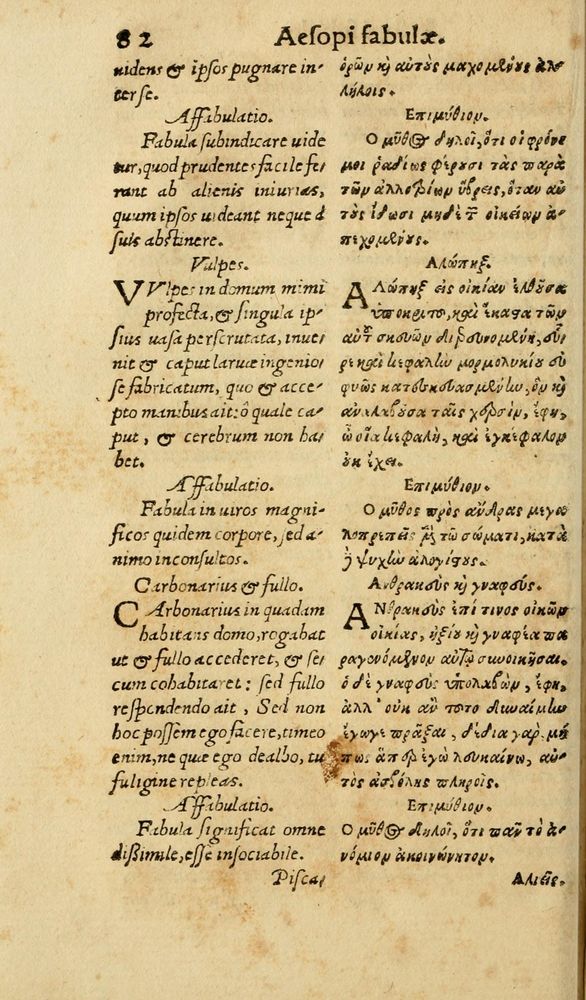 82 Aesopi fabulæ.
uidens & ipsos pugnare in-
ter se.
Affabulatio.
Fabula subindicare uide
tur, quod prudentes facile fe-
rant ab alienis iniurias,
quum ipsos uideant neque à
suis abstinere.
Vulpes.
VVlpes in domum mimi
profecta, & singula ip-
sius uasa perscrutata, inue-
nit & caput laruæ ingenio-
se fabricatum, quo & acce-
pto manibus ait: ô quale ca-
put, & cerebrum non ha-
bet.
Affabulatio.
Fabula in uiros magni-
ficos quidem corpore, sed a-
nimo inconsultos.
Carbonarius & fullo.
CArbonarius in quadam
habitans domo, rogabat
ut & fullo accederet, & se-
cum cohabitaret: sed fullo
respondendo ait, Sed non
hoc possem ego facere, timeo
enim, ne quæ ego dealbo, tu
fuligine repleas.
Affabulatio.
Fabula significat omne
dißimile, esse insociabile.
Pisca-
ὁρῶν καὶ αὐτοὺς μαχομένους ἀλ-
λήλοις.
Επιμύθιον.
Ο μῦθος δηλοῖ, ὅτι οἱ φρόνι-
μοι ῥαδίως φέρουσι τὰς παρὰ
τῶν ἀλλοτρίων ὕβρεις, ὅταν αὐ-
τοὺς ἴδωσι μηδὲ τῶν οἰκείων ἀ-
πεχομένους.
Αλώπηξ.
ΑΛώπηξ εἰς οἰκίαν ἐλθοῦσα
ὑποκριτοῦ, καὶ ἕκαστα τῶν
αὐτοῦ σκευῶν διερευνομένη, εὗ-
ρε καὶ κεφαλὴν μορμολυκίου εὐ
φυῶς κατεσκευασμένην, ὃν καὶ
ἀναλαβοῦσα ταῖς χερσὶν, ἔφη,
ὦ οἵα κεφαλὴ, καὶ ἐγκέφαλον
οὐκ ἔχει.
Επιμύθιον.
Ο μῦθος πρὸς ἄνδρας μεγα
λοπρεπεῖς μὲν τῷ σώματι, κατὰ
δὲ ψυχὴν ἀλογίστους.
Ανθρακεὺς καὶ γναφεύς.
ΑΝθρακεὺς ἐπί τινος οἰκῶν
οἰκίας, ἠξίου καὶ γναφέα πα
ραγενόμενον αὐτῷ συνοικῆσαι.
ὁ δὲ γναφεὺς ὑπολαβὼν, ἔφη,
ἀλλ' οὐκ ἂν τοῦτο δυναίμην
ἔγωγε πρᾶξαι, δέδια γὰρ μή
πως ἅπερ ἐγὼ λευκαίνω, αὐ-
τὸς ἀσβόλης πληροῖς.
Επιμύθιον.
Ο μῦθος δηλοῖ, ὅτι πᾶν τὸ ἀ-
νόμοιον ἀκοινώνητον.
Αλιεῖς.